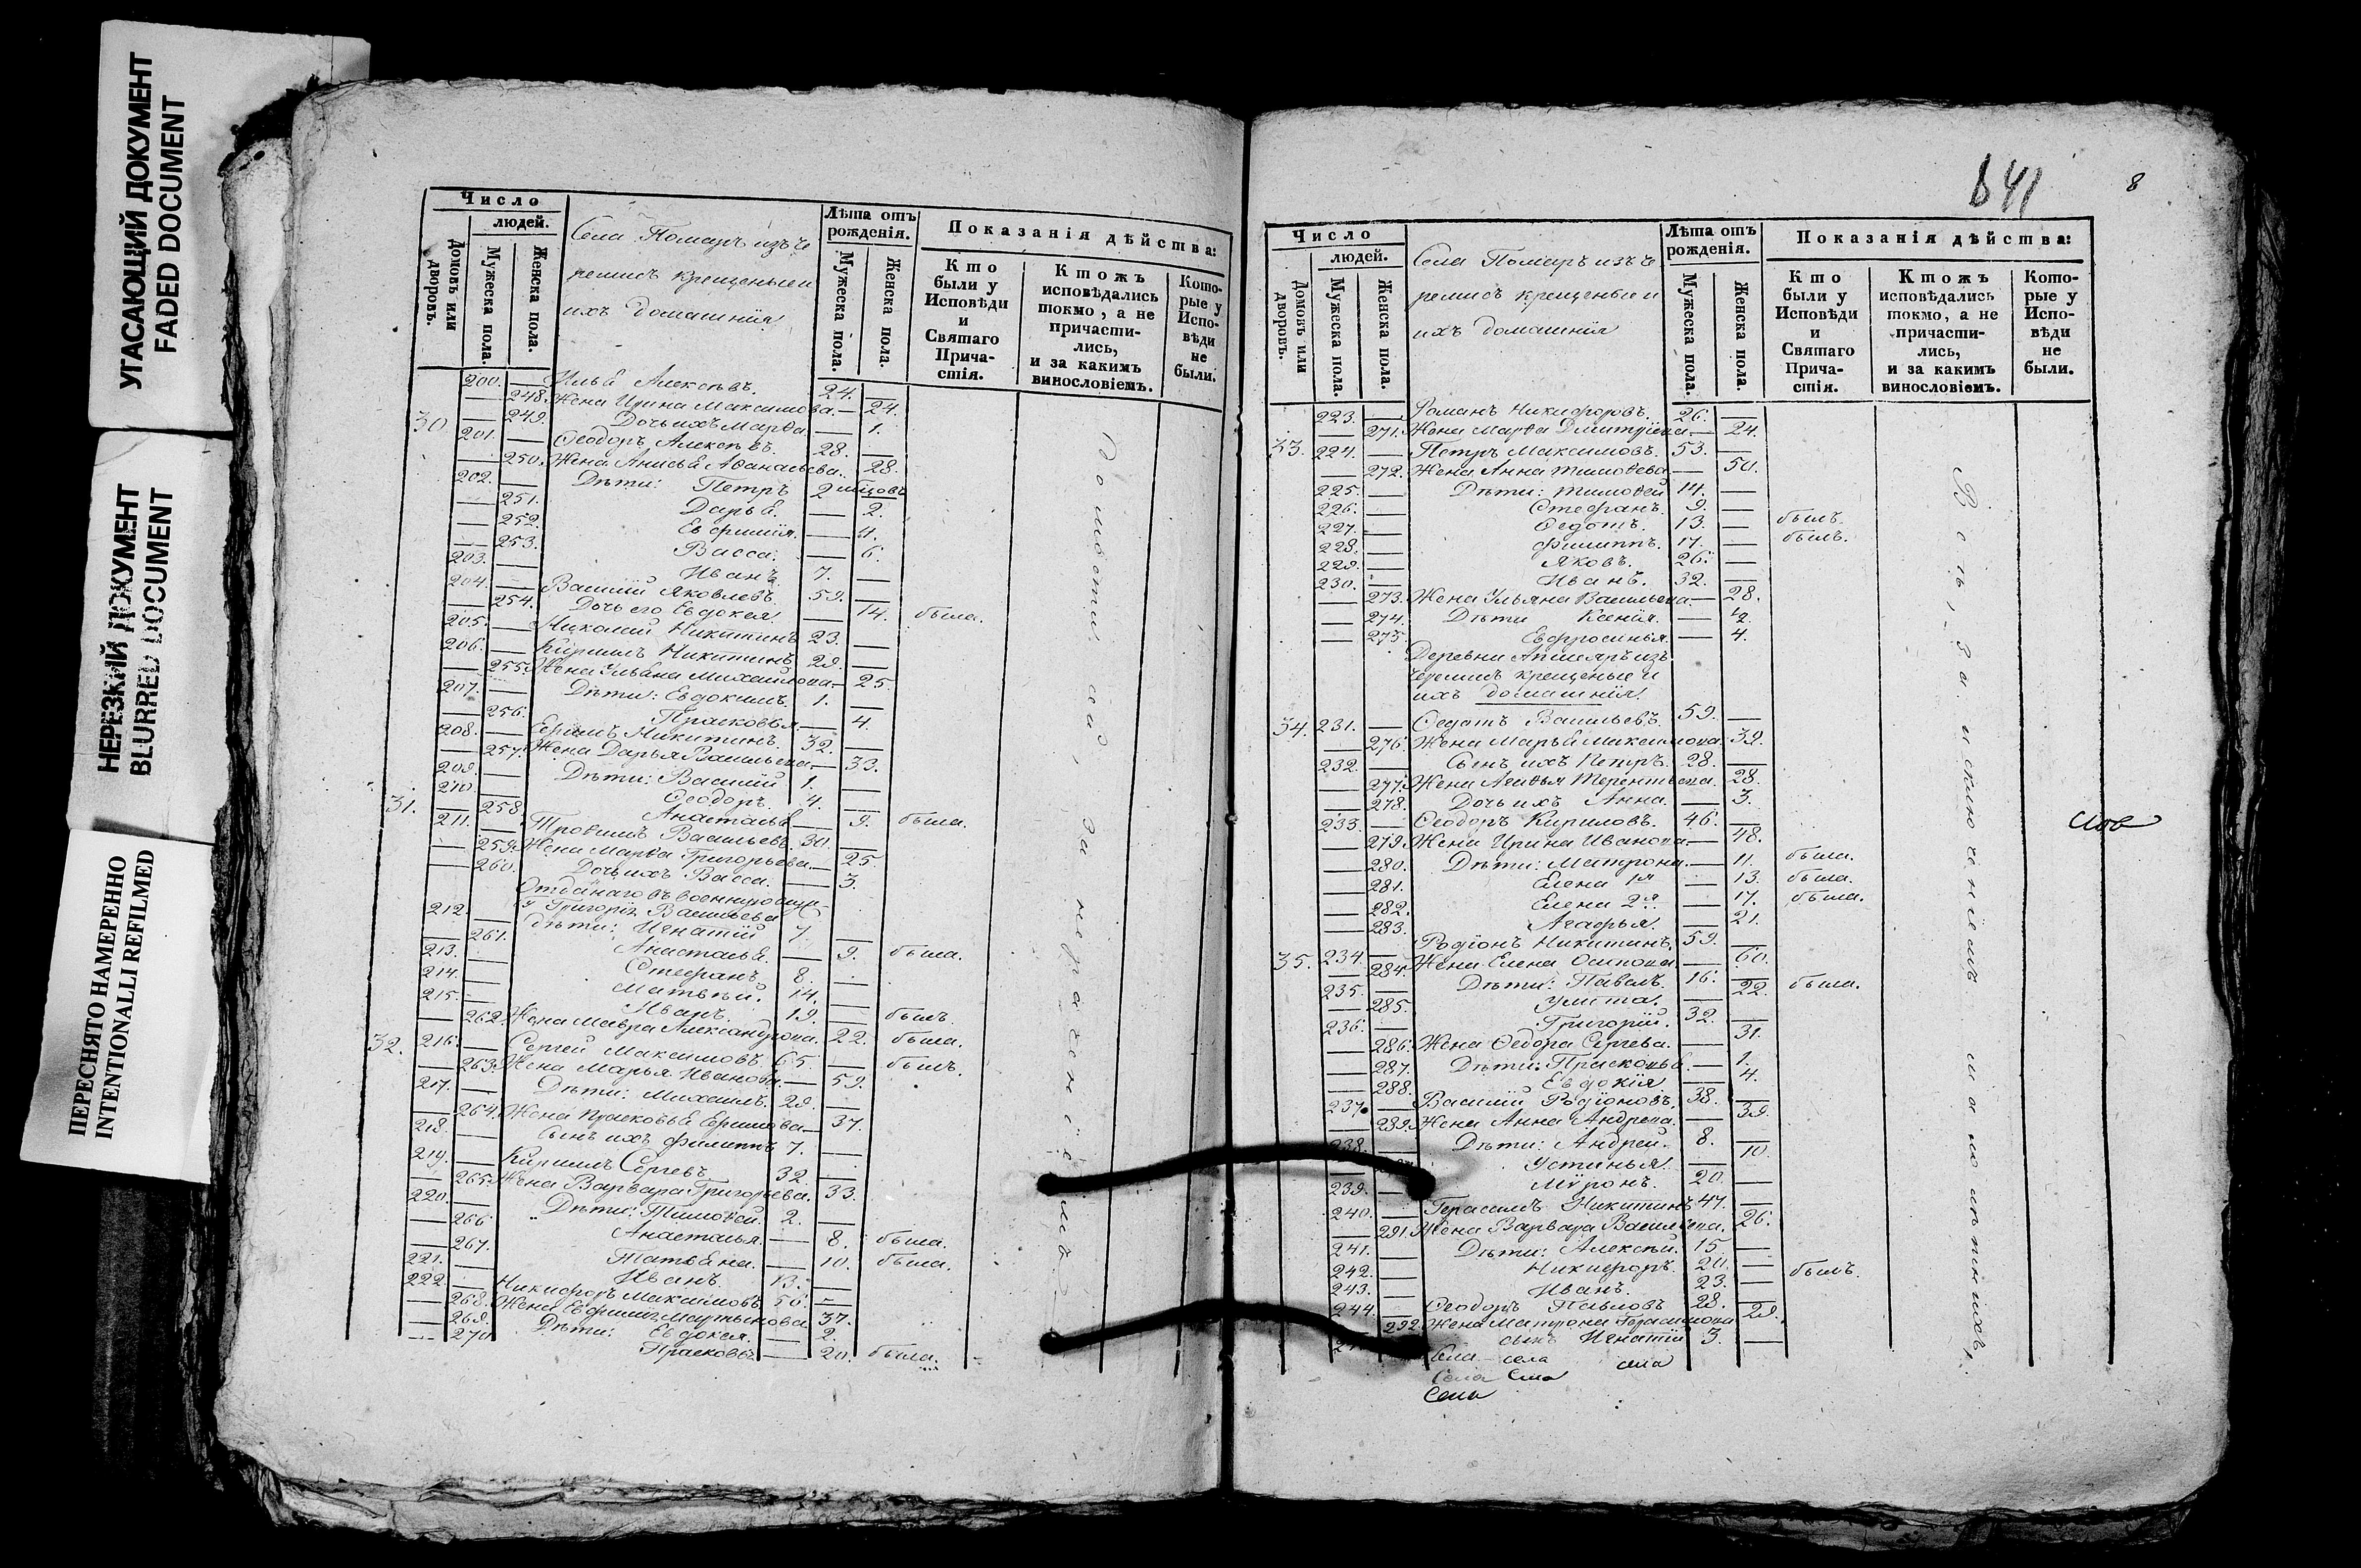 УГАСАЮЩИЙ ДОКУМЕНТ
FADED DOCUMENT
НЕРЕЗКИЙ ДОКУМЕНТ
BLURRED DOCUMENT
ПЕРЕСНЯТО НАМЕРЕННО
INTENTIONALLI REFILMED
Число
людей.
Домовъ или дворовъ.
Мужеска пола.
Женска пола.
Села Помаръ изъ че
ремисъ крещеные и
ихъ домашнія
Лѣта отъ рожденія.
Мужеска пола.
Женска пола.
Показанія дѣйства:
Кто были у Исповѣди и Святаго Прича-стія.
Ктожъ исповѣдались токмо, а не причасти-лись, и за какимъ винословіемъ.
Кото-рые у Испо-вѣди не были.
200. — Илья Алексѣевъ. 24.
— 248. Жена Ирина Максимова. — 24.
— 249. Дочь ихъ Марѳа. — 1.
30 201. — Ѳеодоръ Алексѣевъ. 28. —
— 250. Жена Анисья Аѳанасьева. 28.
202. — Дѣти: Петръ 2
— 251. Дарья. — 2.
— 252. Евфимія. — 4.
— 253. Васса. — 6.
203. — Иванъ. 7. —
204. — Василій Яковлевъ. 59. —
— 254. Дочь его Евдокея. — 14. была.
205. — Николай Никитинъ 23. —
206. — Кирилъ Никитинъ 29. —
— 255. Жена Ульяна Михайлова. — 25.
207. — Дѣти: Евдокимъ. 1. —
— 256. Прасковья. — 4.
208. — Никитинъ. 32. —
— 257. Жена Дарья Васильева. — 33.
209. — Дѣти: Василій 1. —
210. — Ѳеодоръ. 4. —
31. — 258. Анастасья — 9. была.
211. — Трофимъ Васильевъ. 30. —
— 259. Жена Марѳа Григорьева. — 25.
— 260. Дочь ихъ Васса. — 3.
Григорія Васильева
212. — дѣти: Игнатій 7. —
— 261. Анастасья. — 9. была.
213. — Стефанъ. 8. —
214. — Матвѣй. 14. —
215. — Иванъ. 19. — былъ.
— 262. Жена Мавра Александрова. 22. была.
32. 216. — Сергей Максимовъ. 65. — былъ.
— 263. Жена Марья Иванова. — 59.
217. — Дѣти: Михаилъ. 29. —
— 264. Жена Прасковья Ефимова — 37.
218. — Сынъ ихъ Филиппъ 7. —
219. — Кирилъ Сергѣевъ 32. —
— 265. Жена Варвара Григорьева. 33.
220. — Дѣти: Тимоѳей. 2. —
— 266 Анастасья. — 8. была.
— 267. Татьяна. — 10. была.
221. — Иванъ. 13. —
222. — Никифоръ Максимовъ. 56. —
— 268. Жена Мартынова 37.
— 269. Дѣти: Евдокея. — 2.
— 270 Прасковья — 20. была.
841
8
Число
людей.
Домовъ или дворовъ.
Мужеска пола.
Женска пола.
Села Помаръ изъ че
ремисъ крещеные и
ихъ домашнія
Лѣта отъ рожденія.
Мужеска пола.
Женска пола.
Показанія дѣйства:
Кто были у Исповѣди и Святаго Прича-стія.
Ктожъ исповѣдались токмо, а не причасти-лись, и за какимъ винословіемъ.
Кото-рые у Испо-вѣди не были.
223. — Романъ Никифоровъ. 26. —
— 271. Жена Марѳа Дмитріева — 24.
33. 224. — Петръ Максимовъ. 53. —
— 272. Жена Анна Тимоѳева — 50.
225. — Дѣти: Тимоѳей 14. —
226. — Стефанъ. 9. —
227. — Ѳедотъ. 13. — былъ.
228. — Филиппъ. 17. — былъ.
229. — Яковъ. 26. —
230. — Иванъ. 32. —
— 273. Жена Ульяна Васильева. — 28.
— 274. Дѣти Ксенія. —
— 275. Евфросинья. — 4.
Деревни изъ
черемисъ крещеные и
ихъ домашнія.
34. 231. — Ѳедотъ Васильевъ. 59. —
— 276. Жена Марья Максимова. 39.
232. — Сынъ ихъ Петръ. 28. —
— 277. Жена Терентьева. 28.
— 278. Дочь ихъ Анна. — 3.
233. — Ѳеодоръ Кириловъ. 46. —
— 279. Жена Ирина Иванова. — 48.
— 280. Дѣти: Матрона. — 11. была.
— 281. Елена 1я — 13. была.
— 282. Елена 2я. — 17. была.
— 283. Агафья. — 21.
35. 234. — Родіонъ Никитинъ. 59. —
— 284. Жена Елена Осипова. — 60.
235. — Дѣти: Павелъ. 16. —
— 285. Улита. — 22. была.
236. — Григорій. 32. —
— 286. Жена Ѳедора Сергѣева. — 31.
— 287. Дѣти: Прасковья. — 1.
— 288. Евдокія — 4.
237. — Василій Родіоновъ. 38. —
— 289. Жена Анна Андреева. — 39.
238. — Дѣти: Андрей. 8. —
Устинья. — 10.
239. — Мѵронъ. 20. —
240. — Герасимъ Никитинъ 47. —
— 291. Жена Варвара Васильева. 26.
241. — Дѣти: Алексѣй. 15 —
242. — Никифоръ. 20. — былъ.
243. — Иванъ. 23. —
244. — Ѳеодоръ Павловъ 28. —
— 292. Жена Матрона Герасимова 29.
сынъ Игнатій 3. —
Села села села
Села Села
Села